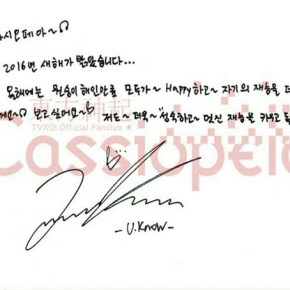 시오페아~
2016년 새해가 밝았습니다...
올해에는 원숭이해인만큼 모두가~ Happy하고~ 자기의 재능을
보고싶어요~ 저도~ 더욱~ 성숙하고~ 멋진 재능을 키우고
東方神起
TVXQ! Official Fanclub
Cassiopeia
-U.Know-